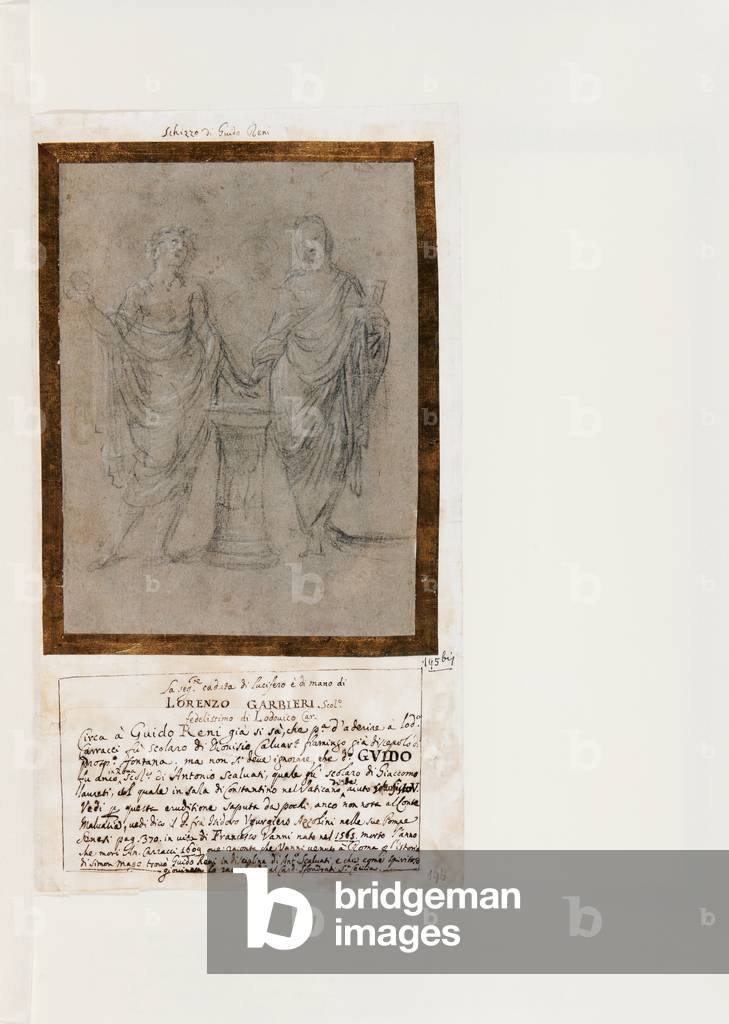 Schizzo di Guido Reni
195 bis
La seg.te caduta di lucifero è di mano di
LORENZO GARBIERI Scol.o
fedelissimo di Lodovico Car.
Circa à GUIDO Reni già si sà, che p.a d'aderire à Lod.o
Carracci fù scolaro di Dionisio Caluart fiamingo già discepolo di
Prosp.o fontana. ma non si deue ignorare, che d.o GVIDO
fu anco in Roma Scol.o di Antonio Scaluati, quale fù scolaro di Giaccomo
laureti, del quale in sala di Costantino nel Vaticano aiuto Sisto V.
Vedi questa eruditione saputa da pochi, anco non nota al Conte
Maluasia, vedi dico il P. fra Isidoro Vgurgiero Azzolini nelle sue Pompe
Sanesi pag. 370. in vita di Francesco Vanni nato nel 1563. morto l'anno
che morì An. Carracci 1609 oue racconta che Vanni venuto à Roma p l'Istoria
di Simon Mago trouò Guido Reni in disciplina di Ant.o Scaluati e che come spiritoso
giouine lo al Card. Sfondrati S.ta Cecilia
196
b bridgeman
images